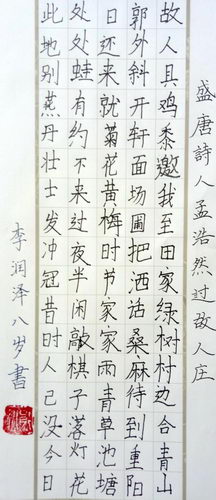 盛唐诗人孟浩然过故人庄
故人具鸡黍邀我至田家绿树村边合青山
郭外斜开轩面场圃把酒话桑麻待到重阳
日还来就菊花黄梅时节家家雨青草池塘
处处蛙有约不来过夜半闲敲棋子落灯花
此地别燕丹壮士发冲冠昔时人已没今日
李润泽八岁書